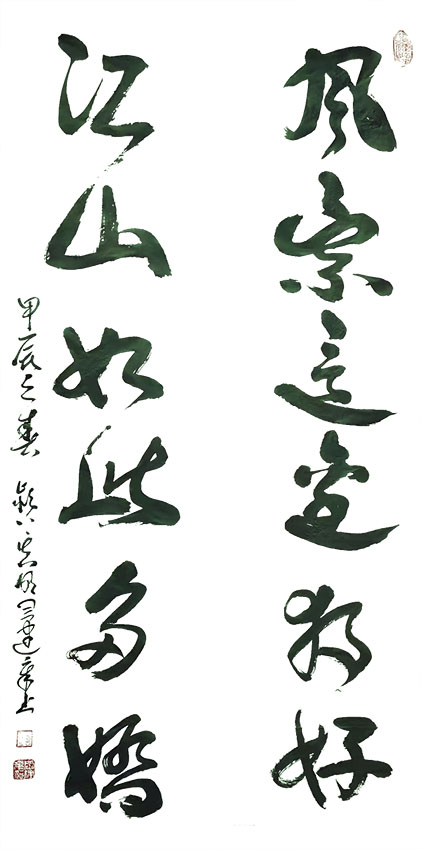 风景這邊独好
江山如此多嬌
甲辰之春